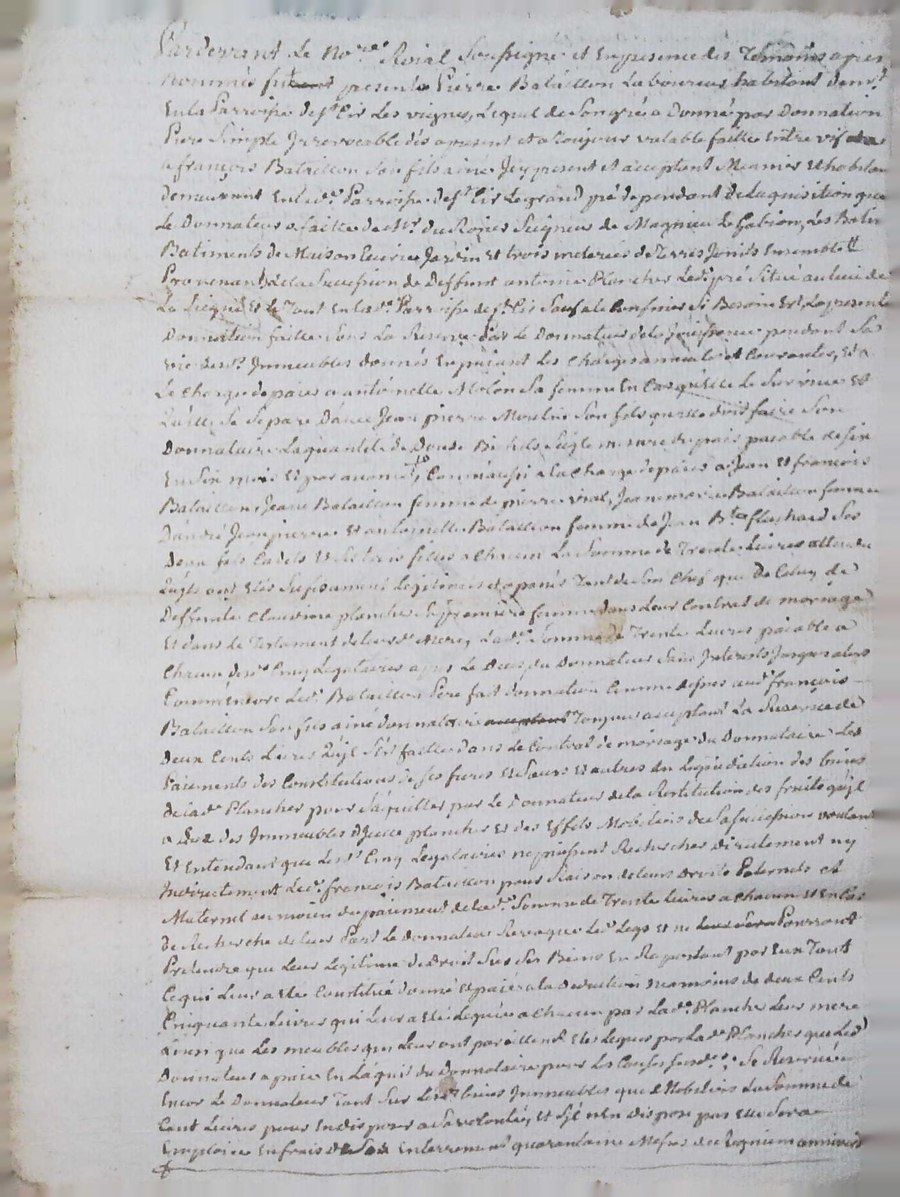 Pardevant Le No.re Roial Soussigné et En presence des Temoins apres
nommés fut present Pierre Bataillon Laboureur habitant dem.t
En la Parroisse de S.t Cir Les vignes, Lequel de Son gré a Donné par Donnation
Pure Simple Irrevocable dès apresent et a toujour valable faitte Entre vifs
a françois Bataillon Son fils ainé Icy present et acceptant Meunier Et habitant
demeurant En lad.e Parroisse de S.t Cir Le grand pré dependant de Laquisition que
Le Donnateur a faitte de M.r du Rozier Seigneur de Magnieu Le Gabion, Les
Batiments de Maison Ecurie Jardin Et trois meterées de Terres Joints Ensemble
Provenants de la Succession de Deffunt antoine Plancher Led. pré Situé au lieu de
La Et Le Tout En lad.e Parroisse de S.t Cir Sauf a le Confiner Si Besoin Est, La presente
Donnation faitte Sous La Reserve que Le Donnateur de la Jouissance pendant Sa
vie des.d Immeubles donnés En paiant Les Charges annuels et Courantes, Et a
La Charge de paier a antoinette Molon Sa femme En Cas quElle Le Survive Et
quElle Se Separe Davec Jean pierre Moulin Son fils quelle doit faire Son
Donnataire La quantité de Douze Bichets Seigle mesure de païs paiable de Six
En Six mois Et par avance, Comme aussi a la Charge de paier a Jean Et françois
Bataillon, Jeanne Bataillon femme de pierre vial, Jeanne marie Bataillon femme
Dandré Jeanpierre Et antoinette Bataillon femme de Jean B.te Ses
Deux fils Cadets Et Ses trois filles a Chacun La Somme de Trente Livres attendu
Quils ont Etés Suffisament Legitimes et apanés Tant de Son Chef que De Celuy de
Deffunte Claudine plancher Sa premiere femme dans Leur Contrat de mariage
Et dans Le Testament de leurd.e Mere, Lad.e Somme de Trente Livres paiable a
Chacun desd. Cinq Legataires apres Le Deces du Donnateur Sans Interests Jusques alors
Comme Encore Led. Bataillon Pere fait Donnation Comme dessus aud. françois
Bataillon Son fils ainé donnataire Toujour acceptant La Reserve de
Deux Cents Livres Quil S'Est faitte dans Le Contrat de mariage du Donnataire Les
Paiements des Constitutions de Ses freres Et Sœurs Et autres du des biens
de lad.e Plancher pour Saquitter par Le Donnateur de la Restitution des fruits quil
a Eus des Immeubles dIcelle plancher Et des Effets Mobiliers de La Succession voulant
Et Entendant que Lesd. Cinq Legataires ne puissent Rechercher directement ny
Indirectement Led. françois Bataillon pour Raison de leurs Droits Paternels et
Maternel au moien du paiement de lad.e Somme de Trente Livres a Chacun Et En Cas
de Recherche de leur Part Le donnateur Revoque Led. Legs Et ne Leur Sera Pourront
Pretendre que Leur Legitime de Droit Sur Ses Biens En Raportant par Eux Tout
Ce qui Leur a Eté Constitué donné Et paié a la Deduction neamoins de deux Cents
Cinquante Livres qui Leur a Eté Leguée a Chacun par Lad.e Plancher Leur mere
Ainsi que Les meubles qui Leur ont pareillement Etés Legués par Lad.e Plancher que Led.
Donnateur a paié En Laquit du Donnataire pour Les Causes Susd.es; Se Reservant
Encor Le Donnateur Tant Sur Lesd. biens Immeubles que Mobiliers La Somme de
Cent Livres pour En disposer a Sa volonté, Et Sil nEn dispose pas Elle Sera
Emploiée En frais de Son Enterrement quarantaine Messes de Requiem